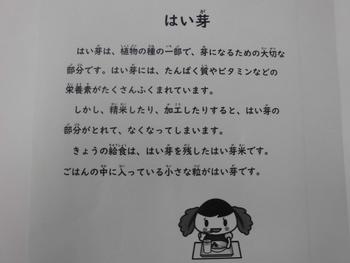 はい芽
はい芽は、植物の種の一部で、芽になるための大切な
部分です。はい芽には、たんぱく質やビタミンなどの
栄養素がたくさんふくまれています。
しかし、精米したり、加工したりすると、はい芽の
部分がとれて、なくなってしまいます。
きょうの給食は、はい芽を残したはい芽米です。
ごはんの中に入っている小さな粒がはい芽です。